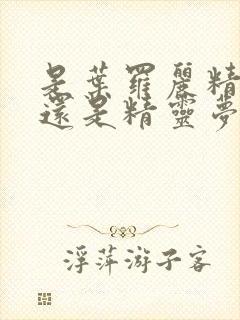 是葉羅麗精
還是精靈夢
浮萍游子客